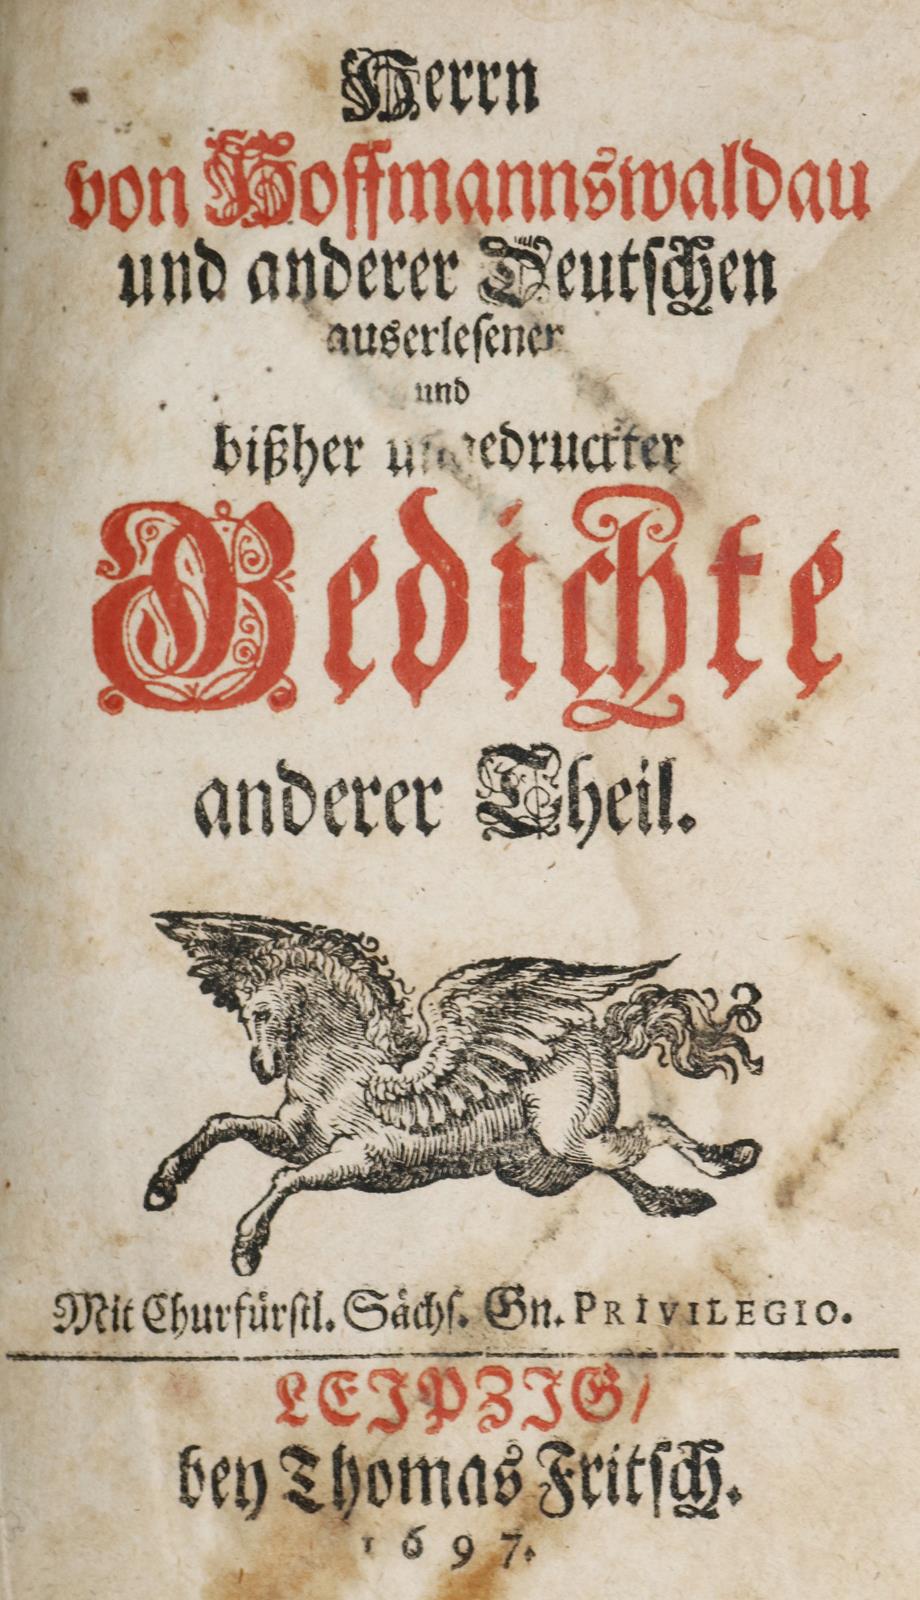 Herrn
von Hoffmannswaldau
und anderer Deutschen
auserlesener
und
bißher ungedruckter
Gedichte
anderer Theil.
Mit Churfürstl. Sächs. Gn. PRIVILEGIO.
LEIPZIG/
bey Thomas Fritsch.
1697.